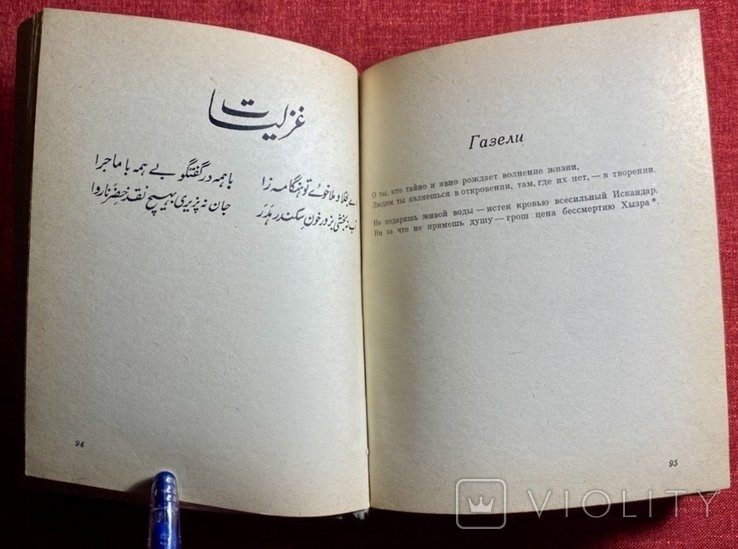 غزلیات
بخلا و ملا خوے تو ہنگامہ زا با ہمہ در گفتگو بے ہمہ با ماجرا
نہ بخشی بزور خون سکندر ہدر جان نہ پذیری بہیچ نقد خضر ناروا
94
Газели
О ты, кто тайно и явно рождает волнение жизни,
Людям ты являешься в откровении, там, где их нет, — в творении.
Не подаришь живой воды — истек кровью всесильный Искандар.
Ни за что не примешь душу — грош цена бессмертию Хызра*.
95
VIOLITY